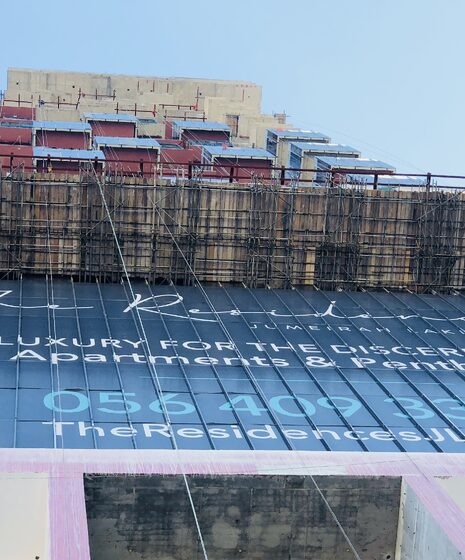 The Residenc
JUMEIRAH LAK
LUXURY FOR THE DISCER
Apartments & Penth
056 409 33
TheResidencesJL